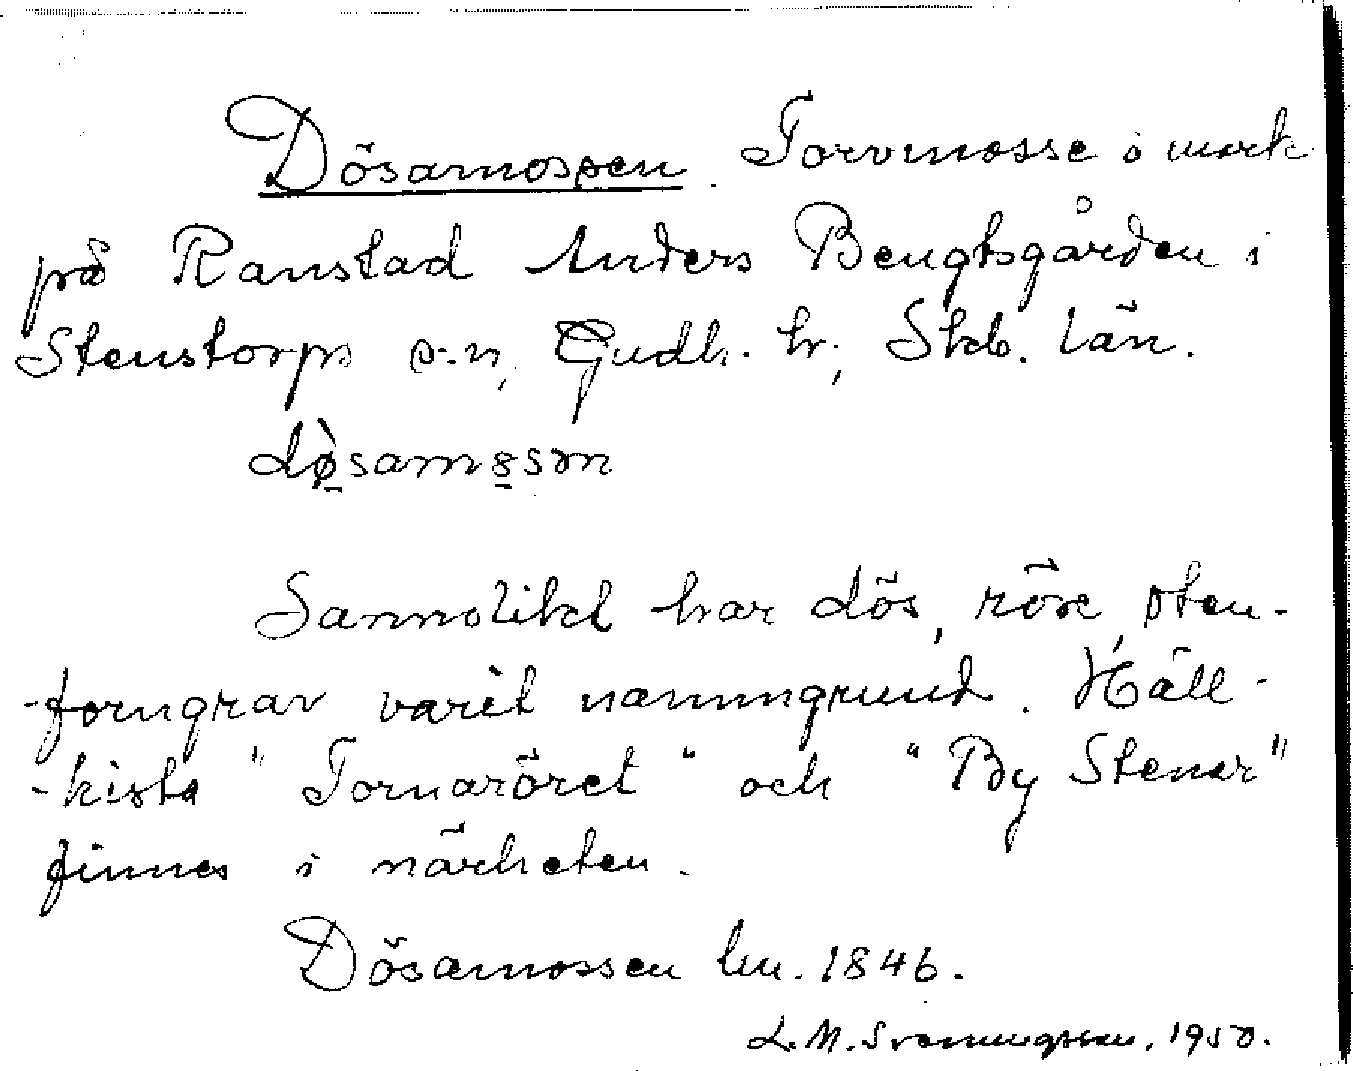 Dösamossen. Torvmosse i mark
på Ranstad Anders Bengtsgården i
Stenstorps s-n, Gudh. hr, Skb. län.
dø̀samo̤sən
Sannolikt har dös, röse, sten-
-forngrav varit namngrund. Häll-
-kista "Tornaröret" och "By Stenar"
finnes i närheten.
Dösamossen lm. 1846.
L. M. Svenungsson. 1950.